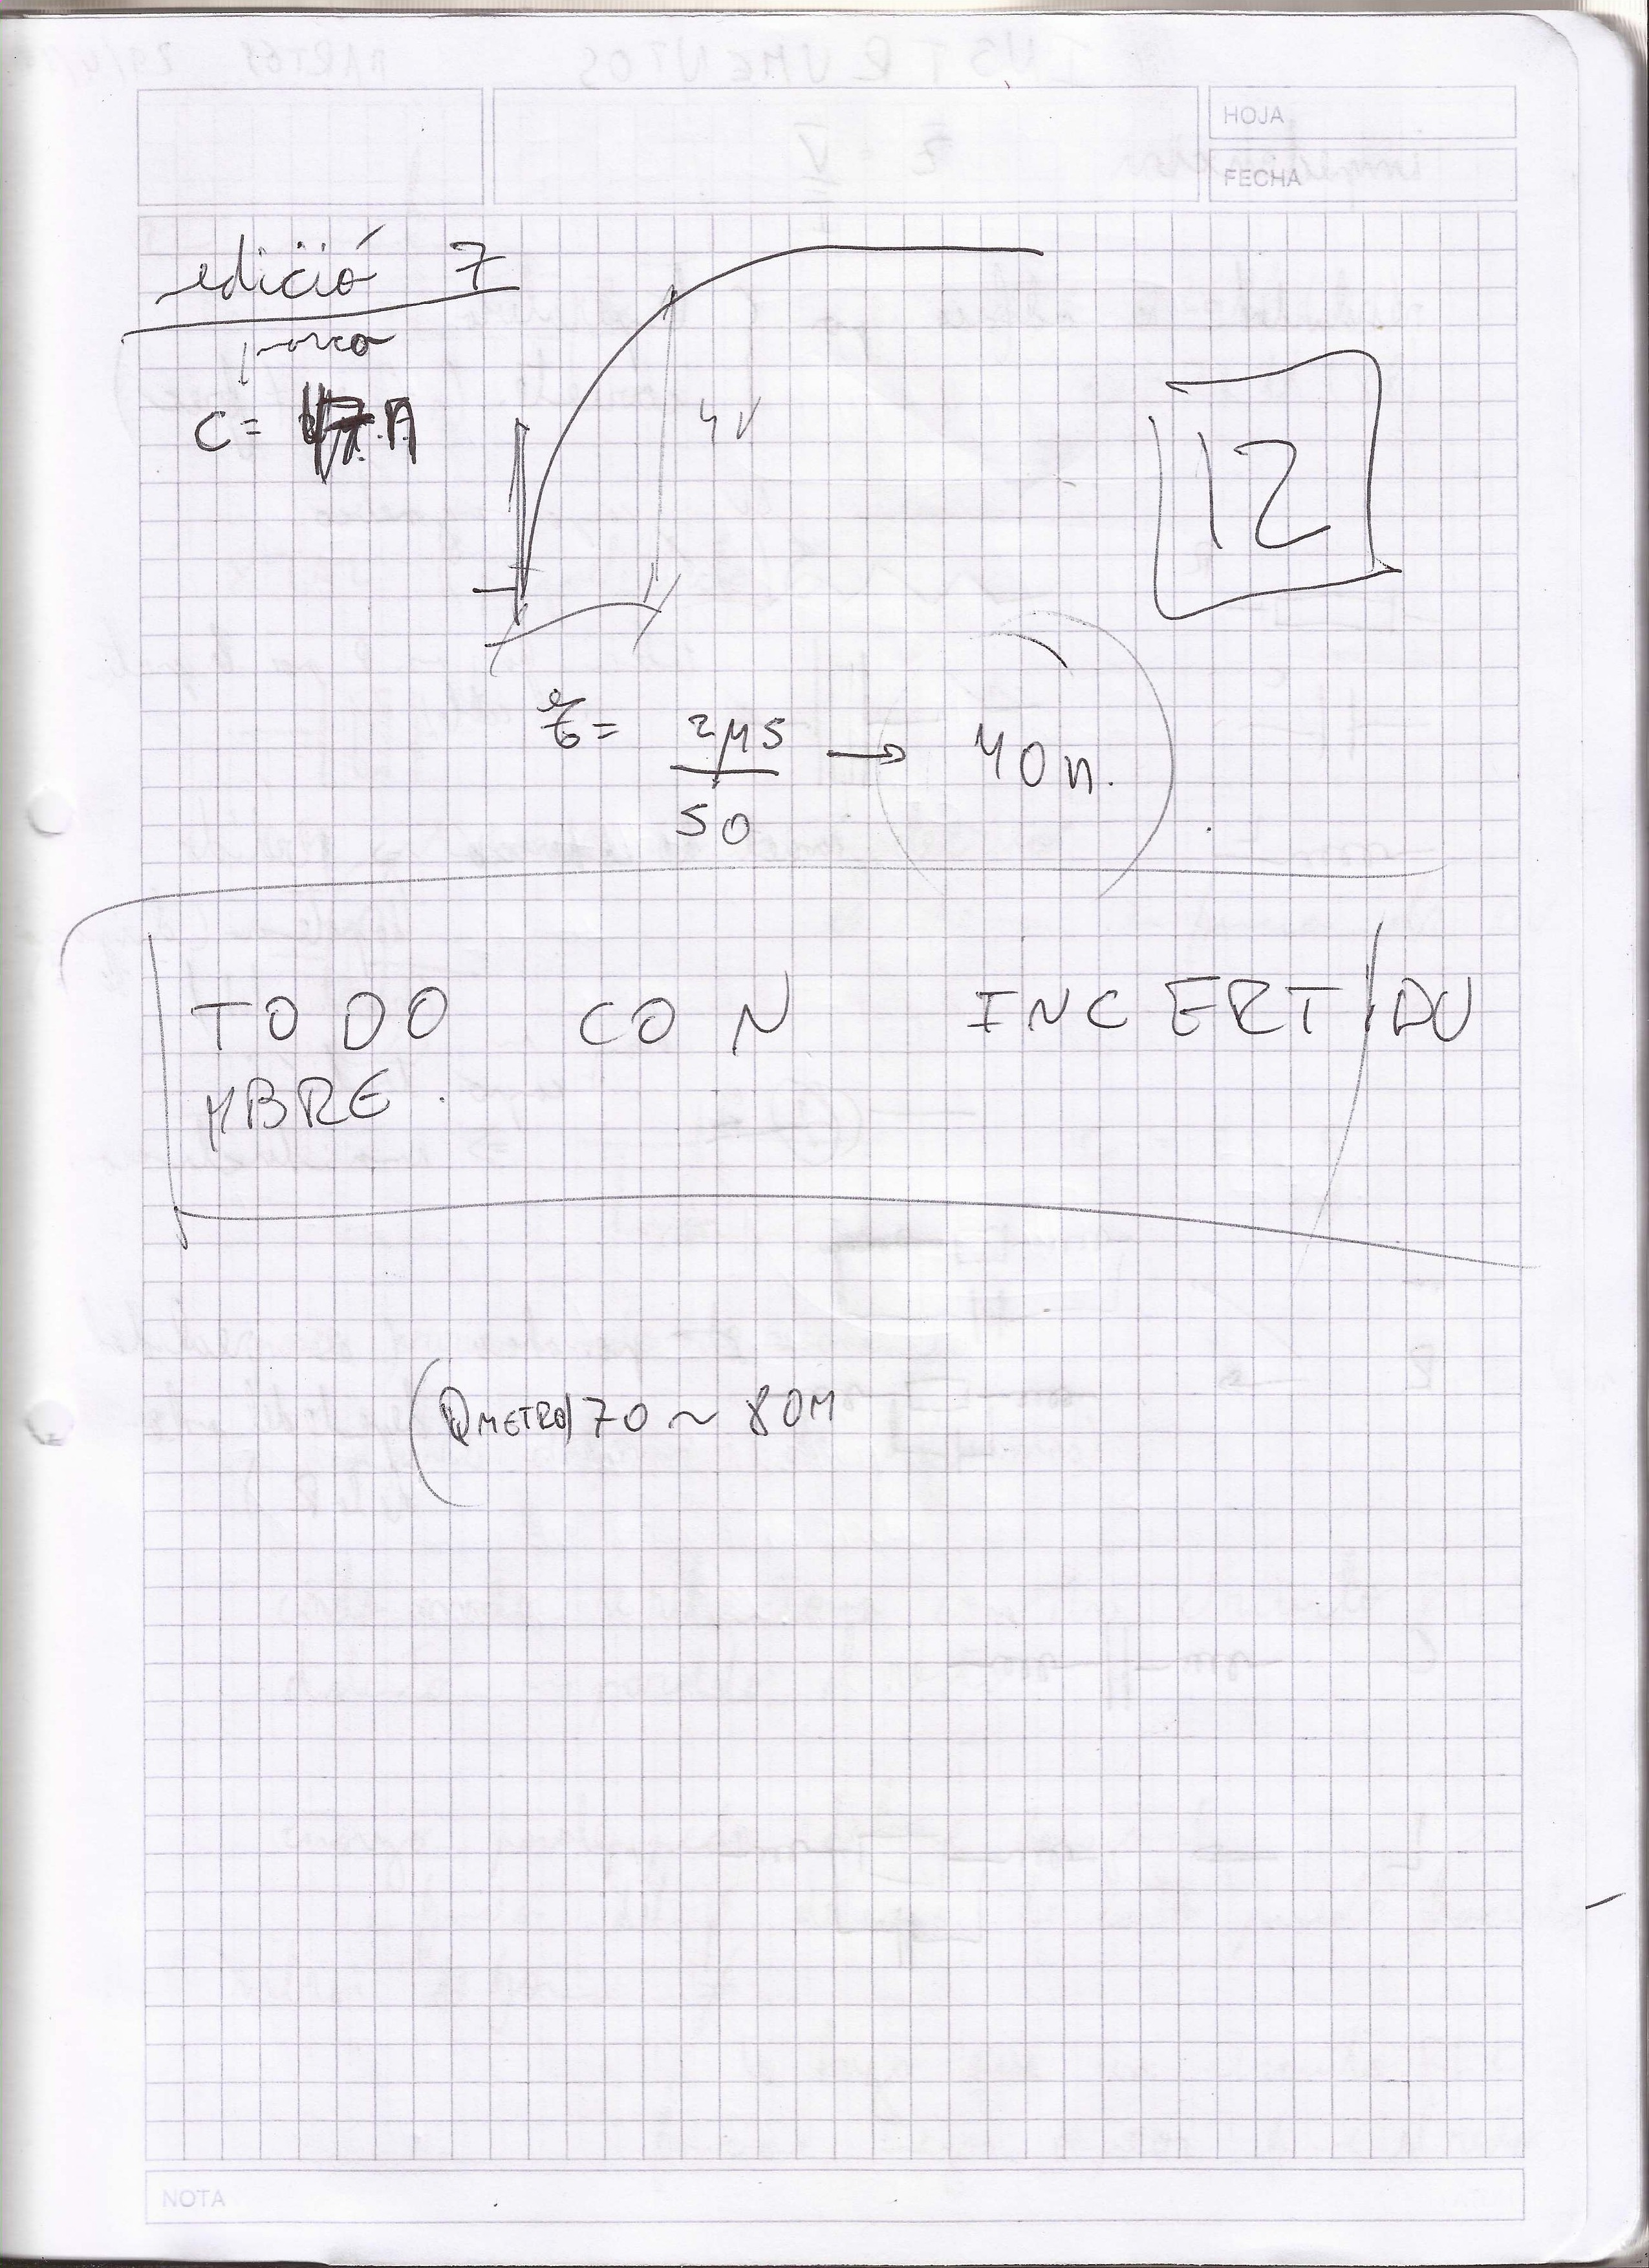 HOJA
FECHA
edició 7
C=
4V
12
= 2μs
50
→ 40n.
TODO CON INCERTIDU
MBRE.
(QMETRO) 70 ~ 80M
NOTA